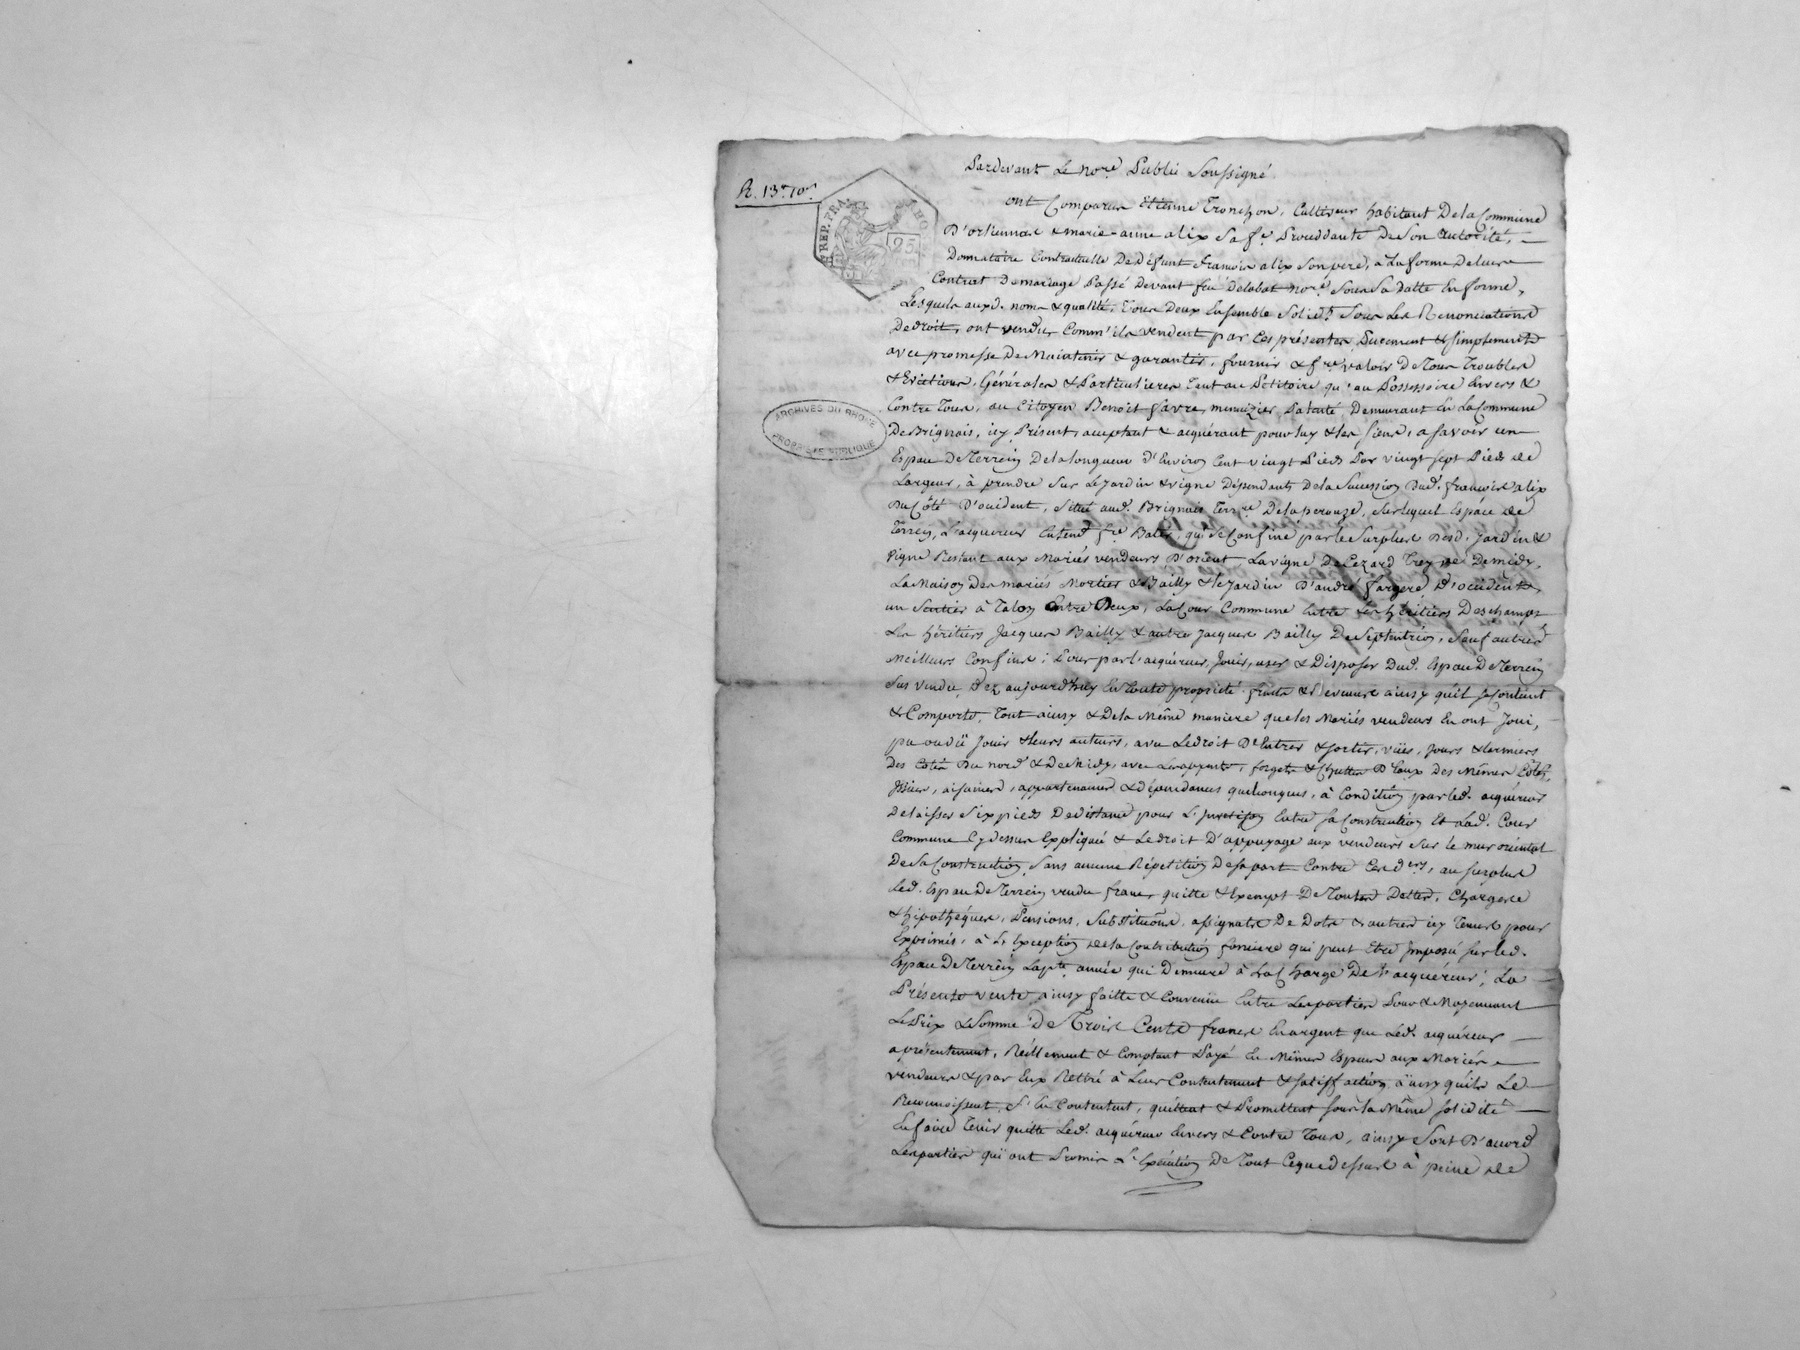 Pardevant Le no.re Public Soussigné
R. 13.e 10.e
ont Comparus Etienne Tronchon, Cultiveur habitant De la Commune
D'orlienas & marie-anne alix Sa f.e Procédante De Son autorité,
Donnataire Contractuelle De Défunt françois alix Son pere, a La forme De leur
Contrat De mariage Passé Devant feu Delabat no.re Sous Sa Datte En forme,
Lesquels auxd. noms & qualité, Tous Deux Ensemble Solid.t Sous Les Renonciations
De droit, ont vendus Comm'ils vendent par Ces présentes Purement & Simplement
avec promesse De Maintenir & garantir, fournir & f.re valoir De Tous Troubles
& Evictions, Générales & Particulieres tant au Petitoire qu'au Possessoire Envers &
Contre Tous, au Citoyen Benoit favre, menuizier Patenté, Demeurant En La Commune
De Brignais, icy Présent, acceptant & acquérant pour luy & les siens, a Savoir un
Espace De Terrein De la longueur d'Environ Cent vingt Pieds Sur vingt sept Pieds de
Largeur, à prendre Sur Le Jardin & vigne Dépendants De la Succession Dud. françois alix
Du Côté D'occident, Situé aud. Brignais Terr.re De laperouze, Sur lequel Espace de
Terrein, L'acquereur Entend f.re Batir, qui Se Confine par le Surplus Desd. Jardin &
vigne Restant aux Mariés vendeurs D'orient La vigne De Cezard De midy,
La Maison Des mariés Mortier & Bailly & le Jardin D'andré fargere D'occident,
un Sentier à Talon Entre Deux, La Cour Commune Entre Les héritiers Deschamps
Les héritiers Jacques Bailly & autre Jacques Bailly De Septentrion, Sauf autres
Meilleurs Confins; Pour par l'acquéreur, Jouir, user & Disposer Dud. Espace De Terrein
Sus vendu, Dez aujourd'huy En Toute propriété fruits & Revenus ainsy qu'il Se Contient
& Comporte, Tout ainsy & De la Même maniere que les Mariés vendeurs En ont Joui,
pu ou dû Jouir & leurs auteurs, avec Le droit D'Entrer & sortir, vües, Jours & larmiers
Des Cotés Du nord & De Midy, avec Les apparts, forgets & Chuttes D'Eaux Des Mêmes Côtés,
aisances, appartenances & dépendances quelconques, à Condition par led. acquéreur
De laisser Six pieds De distance pour L' Entre Sa Construction Et Lad. Cour
Commune Cy dessus Expliqué & Le droit D'appuyage aux vendeurs Sur le mur oriental
De Sa Construction, Sans aucune Répétition De Sa part Contre Ces d.ers, au Surplus
Led. Espace De Terrein vendu franc, quitte & Exempt De Toutes Dettes, Charges
& hipothéques, Pensions, Substitutions, assignats De Dots & autres icy Tenus pour
Exprimés, à L'Exception de la Contribution fonciere qui peut Etre Imposé sur led.
Espace De Terrein La p.te année qui Demeure à La Charge De l'acquéreur; La
Présente vente ainsy faitte & Convenüe Entre Les parties Pour & Moyennant
Le Prix & Somme De Trois Cents francs En argent que Led. acquéreur
a présentement, Réellement & Comptant Payé En Mêmes Especes aux Mariés
vendeurs & par Eux Retiré à Leur Contentement & Satisffaction, ainsy qu'ils Le
Reconnoissent, S'En Contentent, quittent & Promettent Sous la Même Solidité
En faire Tenir quitte Led. acquéreur Envers & Contre Tous, ainsy Sont D'acord
Les parties qui ont Promis L'Exécution De Tout Ce que dessus à peine de
REP. FRA.
25
ARCHIVES DU RHONE
PROPRIETE PUBLIQUE